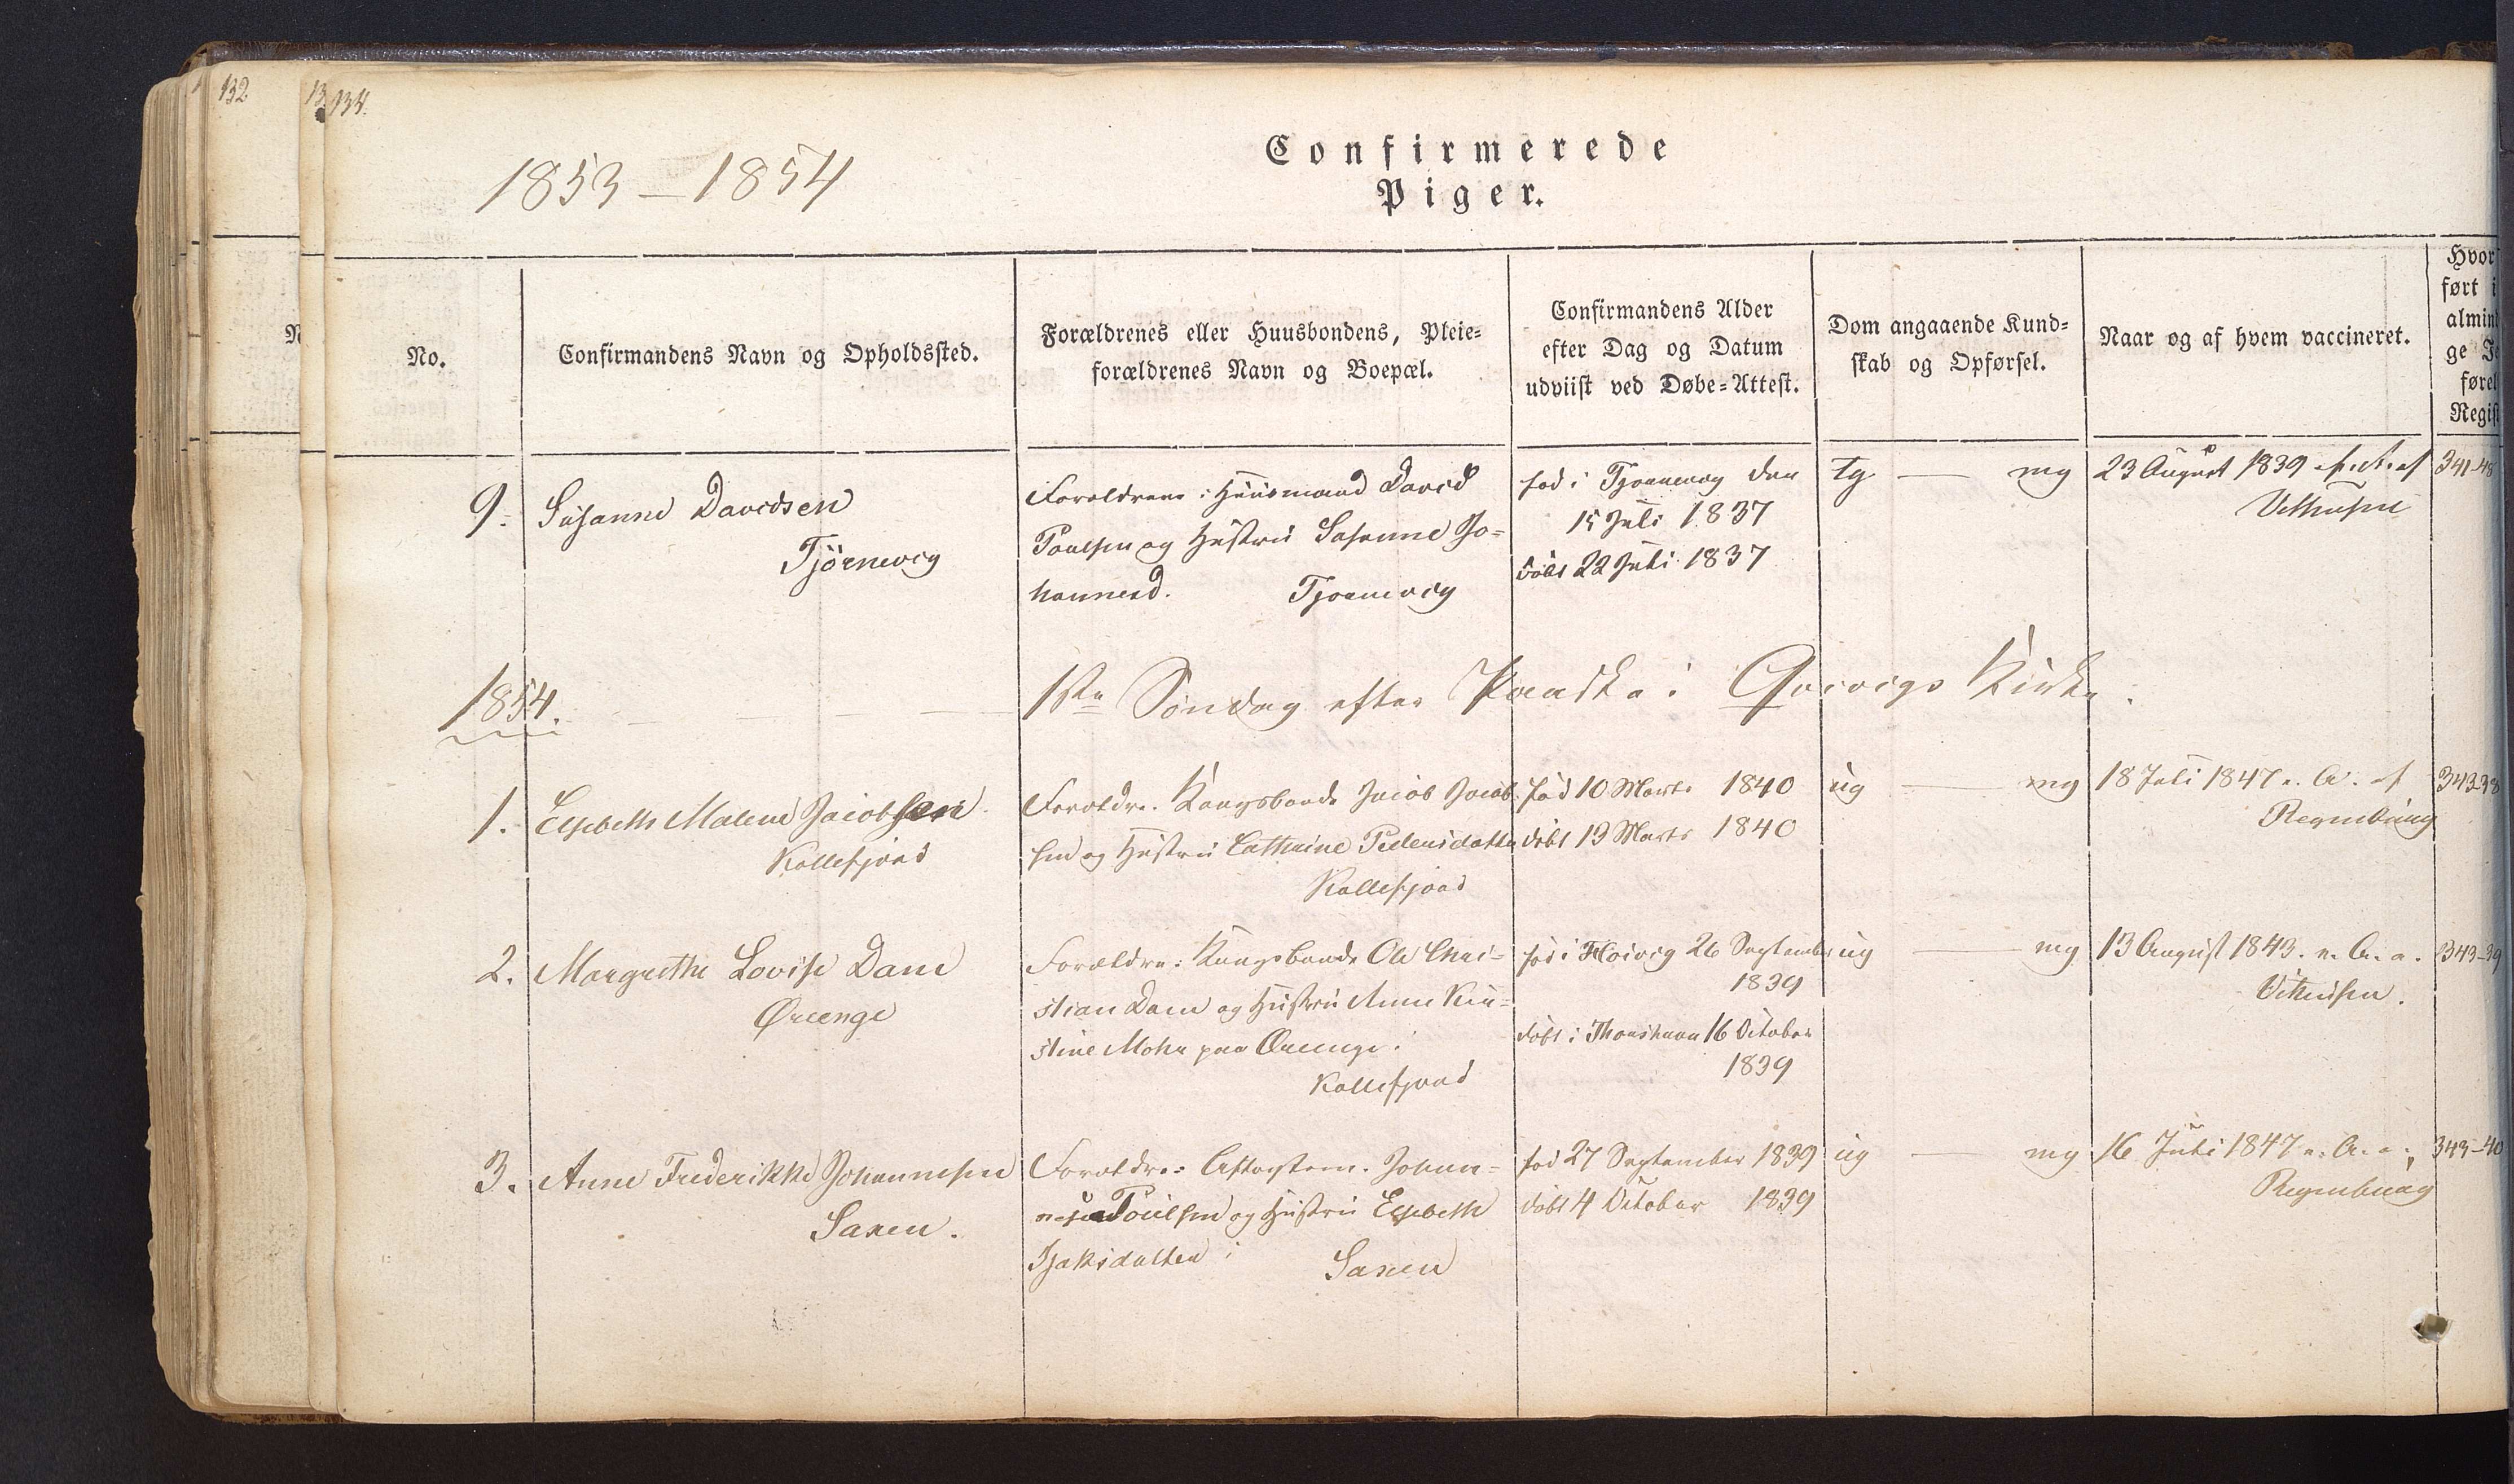 132
134.
1853 – 1854
Confirmerede
Piger.
No.
Confirmandens Navn og Opholdssted.
Forældrenes eller Huusbondens, Pleie=
forældrenes Navn og Boepæl.
Confirmandens Alder
efter Dag og Datum
udviist ved Døbe=Attest.
Dom angaaende Kund=
skab og Opførsel.
Naar og af hvem vaccineret.
Hvor
ført i
almind
ge Je
førel
Regist
9. Susanne Davidsen
Tjörnevig
Forældrene: Huusmand David
Poulsen og Hustru Susanne Jo=
hannesd. Tjørnevig
fød i Tjørnevig den
15 Juli 1837
døbt 22 Juli 1837
tg — mg
23 August 1839 e. A. af
341-48
1854.
1ste Søndag efter Paaske i Qvivigs Kirke.
1. Elsebeth Malene Jacobsen
Kollefjord
Forældre: Kongsbonde Jacob Jacob
sen og Hustru Cathrine Pedersdatter
Kollefjord
fød 10 Marts 1840
døbt 19 Marts 1840
ug mg
18 Juli 1847 e. A. af
Regenburg
343-38
2. Margrethe Lovise Dam
Øreenge
Forældre: Kongsbonde Ole Chri=
stian Dam og Hustru Anne Kir=
stine Mohr paa Øreenge i
Kollefjord
fød i Hoivig 26 September
1839
døbt i Thorshavn 16 October
1839
ug — mg
13 August 1843. e. A. a.
343-39
3. Anne Frederikke Johannesen
Saxen.
Forældre: Aftægtsm. Johan=
nes Poulsen og Hustru Elsebeth
Isaksdatter i Saxen
fød 27 September 1839
døbt 4 October 1839
ug — mg
16 Juli 1847 e. A. a.
Regenburg
343-40